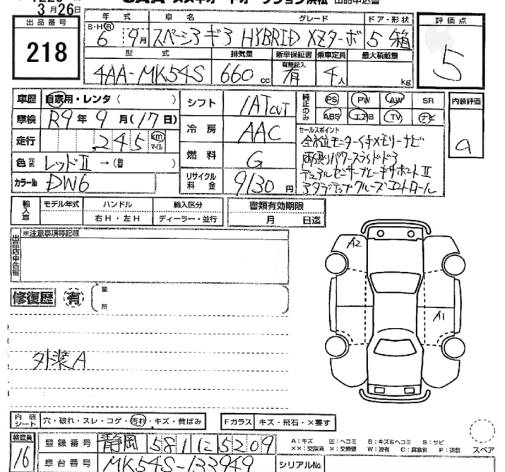 3月26日
出品番号
218
年式 車名 グレード ドア・形状
S・H・R 6年9月 スペーシアギア HYBRID XZターボ 5 箱
型式 排気量 新車保証書 乗車定員 最大積載量
4AA-MK54S 660cc 有 4人 kg
評価点
5
車歴 自家用・レンタ( )
車検 R9年9月(17日)
走行 245 km マイル
色 レッドⅡ →( )
カラーNo. DW6
シフト IAT CVT
冷房 AAC
燃料 G
リサイクル料金 9130円
純正のみ PS PW AW SR
ABS エアB TV ナビ
セールスポイント
全方位モニター付メモリーナビ
両側パワースライドドア
デュアルセンサーブレーキサポートⅡ
アダプティブクルーズコントロール
内装評価
a
輸入車 モデル年式 ハンドル 輸入区分
年 右H・左H ディーラー・並行
書類有効期限
月 日迄
※注意事項等記載
修復歴 有 箇所
外装A
A2
A1
内装シート 穴・破れ・スレ・コゲ・汚れ・キズ・黄ばみ
Fガラス キズ・飛石・×要す
検査員
16
登録番号 静岡 581に5209
車台番号 MK54S-133949
シリアルNo.
A:キズ U:ヘコミ B:キズ&ヘコミ S:サビ
スペア